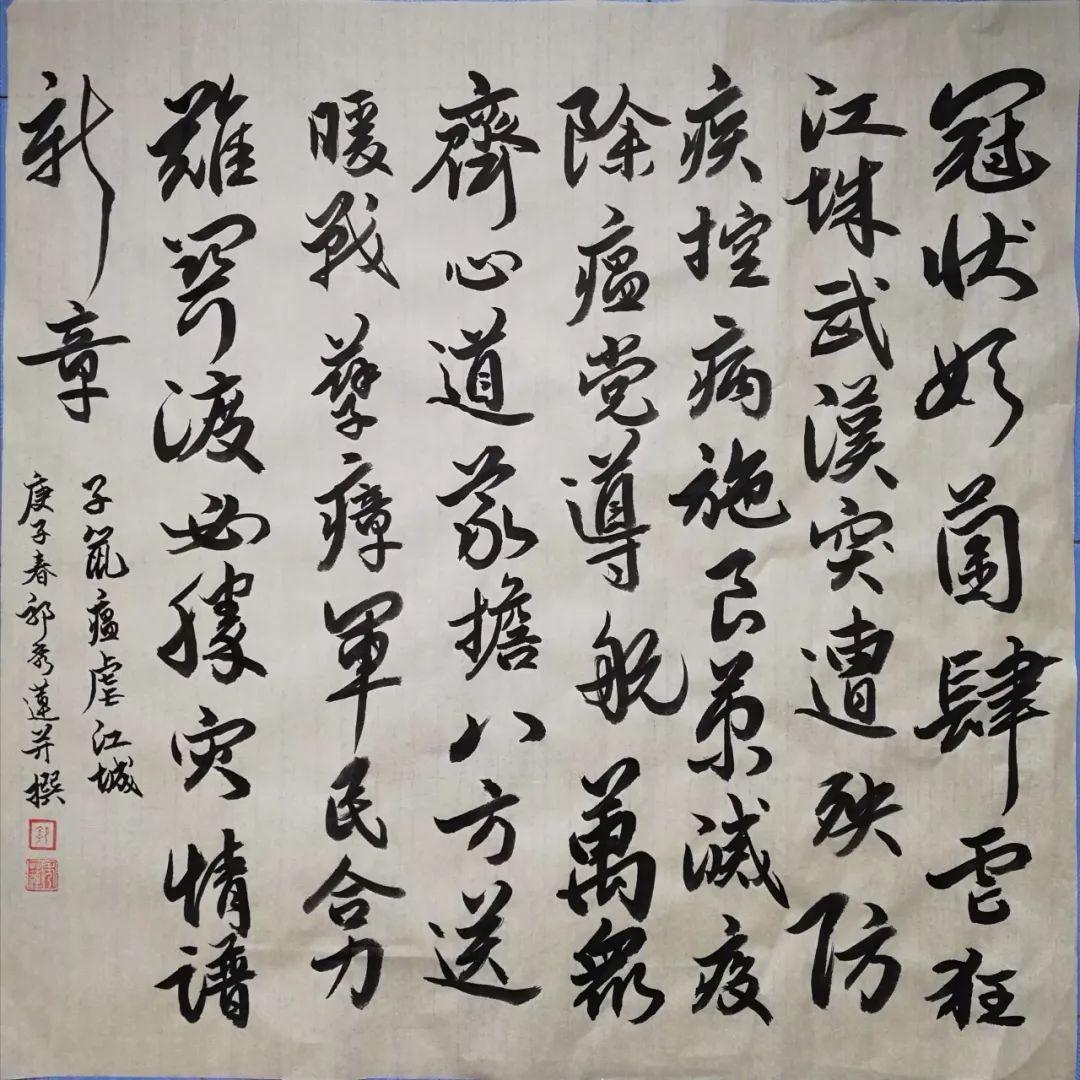 冠状妖菌肆虐狂
江城武漢突遭殃防
疾控病施良策滅疫
除瘟党導航萬眾
齊心道義擔八方送
暖戰孽瘴軍民合力
難關渡必勝灾情譜
新章
子鼠瘟虐江城
庚子春郭秀蓮并撰